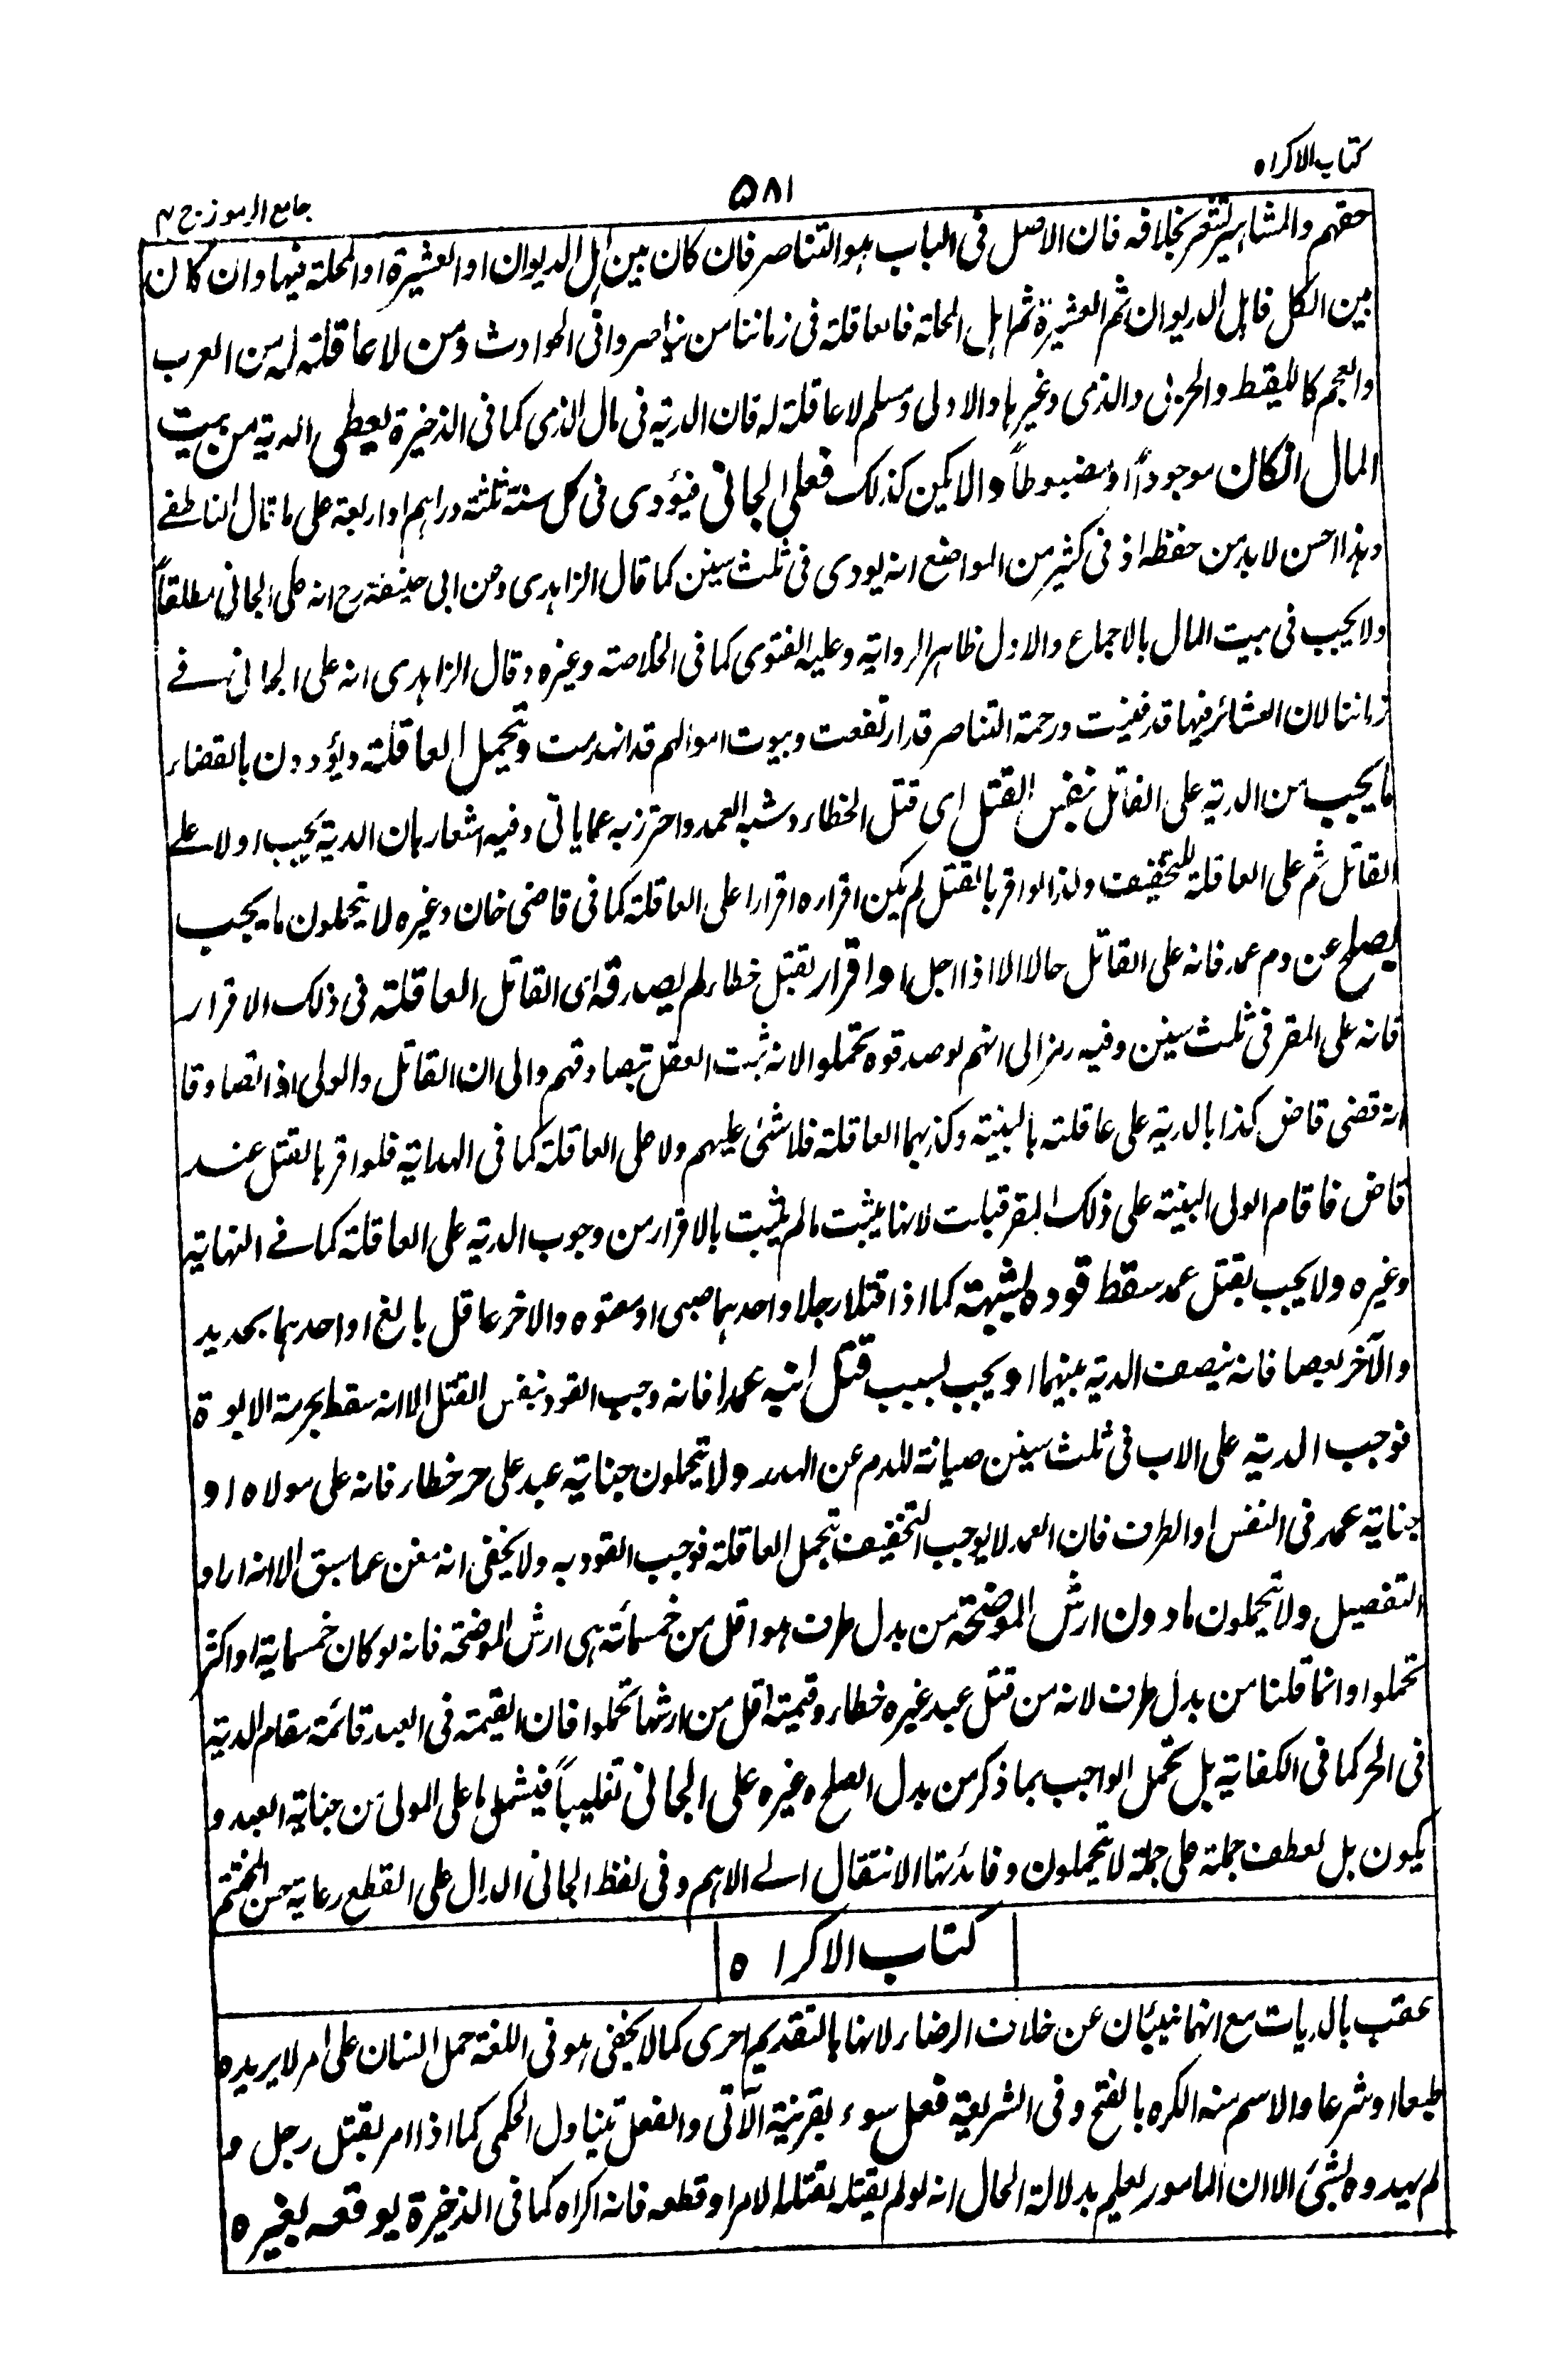 كتاب الاكراه
۵۸۱
جامع الرموز ج ۲
حقهم والمشاهير تشعر بخلافه فان الاصل فى الباب هو التناصر فان كان بين اهل الديوان او العشيرة او المحلة فيها وان كان
بين الكل فاهل الديوان ثم العشيرة ثم اهل المحلة فالعاقلة فى زماننا من تناصروا فى الحوادث ومن لا عاقلة له من العرب
والعجم كاللقيط والحربى والذمى وغيرها والاولى ومسلم لا عاقلة له فان الدية فى مال الذمى كما فى الذخيرة يعطى الدية من بيت
المال ان كان موجوداً او مضبوطاً والا يكن كذلك فعلى الجانى فيؤدى فى كل سنة ثلثة دراهم او اربعة على ما قال الناطفے
وهذا احسن لا بد من حفظه اذ فى كثير من المواضع انه يودى فى ثلث سنين كما قال الزاهدى وعن ابى حنيفة رح انه على الجانى مطلقاً
ولا يجب فى بيت المال بالاجماع والاول ظاهر الرواية وعليه الفتوى كما فى الخلاصة وغيره وقال الزاهدى انه على الجانى فے
زماننا لان العشائر فيها قد فنيت ورحمة التناصر قد ارتفعت وبيوت اموالهم قد انهدمت وتحمل العاقلة ويؤدون بالقضاء
ما يجب من الدية على القاتل بنفس القتل اى قتل الخطاء وشبه العمد واحترز به عما ياتى وفيه اشعار بان الدية يجب اولا علے
القاتل ثم على العاقلة للتخفيف ولذا لو اقر بالقتل لم يكن اقراره اقرارا على العاقلة كما فى قاضى خان وغيره لا يتحملون ما يجب
بصلح عن دم عمد فانه على القاتل حالا الا اذا اجل او اقرار بقتل خطاء لم يصدقه اى القاتل العاقلة فى ذلك الاقرار
فانه على المقر فى ثلث سنين وفيه رمز الى انهم لو صدقوه تحملوا لانه ثبت العقل بتصادقهم والى ان القاتل والولى اذا تصادقا
انه قضى قاض كذا بالدية على عاقلته بالبينة وكذبهما العاقلة فلا شئ عليهم ولا على العاقلة كما فى الهداية فلو اقر بالقتل عند
قاض فاقام الولى البينة على ذلك المقر قبلت لانها يثبت ما لم يثبت بالاقرار من وجوب الدية على العاقلة كما فے النهاية
وغيره ولا يجب بقتل عمد سقط قوده لشبهة كما اذا قتلا رجلا واحدهما صبى او معتوه والاخر عاقل بالغ او احدهما بحديد
والآخر بعصا فانه ينصف الدية بينهما او يجب بسبب قتل ابنه عمدا فانه وجب القود بنفس القتل الا انه سقط بحرمة الابوة
فوجب الدية على الاب فى ثلث سنين صيانة للدم عن الهدر ولا يتحملون جناية عبد على حر خطاء فانه على مولاه او
جناية عمد فى النفس او الطرف فان العمد لا يوجب التخفيف بتحمل العاقلة فوجب القود به ولا يخفى انه مغن عما سبق الا انه اراد
التفصيل ولا يتحملون ما دون ارش الموضحة من بدل طرف هو اقل من خمسمائة هى ارش الموضحة فانه لو كان خمسماية او اكثر
تحملوا وانما قلنا من بدل طرف لانه من قتل عبد غيره خطاء وقيمته اقل من ارشها تحملوا فان القيمة فى العبد قائمة مقام الدية
فى الحر كما فى الكفاية بل تحمل الواجب بما ذكر من بدل الصلح وغيره على الجانى تغليباً فيشمل ما على المولى من جناية العبد و
يكون بل لعطف جملة على جملة لا يتحملون وفائدتها الانتقال الے الاهم وفى لفظ الجانى الدال على القطع رعاية حسن المختتم
كتاب الاكراه
عقب بالديات مع انهما ينبئان عن خلاف الرضاء لانها بالتقديم احرى كما لا يخفى هو فى اللغة حمل انسان على امر لا يريده
طبعا او شرعا والاسم منه الكره بالفتح وفى الشريعة فعل سوء بقرينة الآتى والفعل يتناول الحكمى كما اذا امر بقتل رجل و
لم يهدده بشئ الا ان المامور يعلم بدلالة الحال انه لو لم يقتله لقتله الامر او قطعه فانه اكراه كما فى الذخيرة يوقعه بغيره